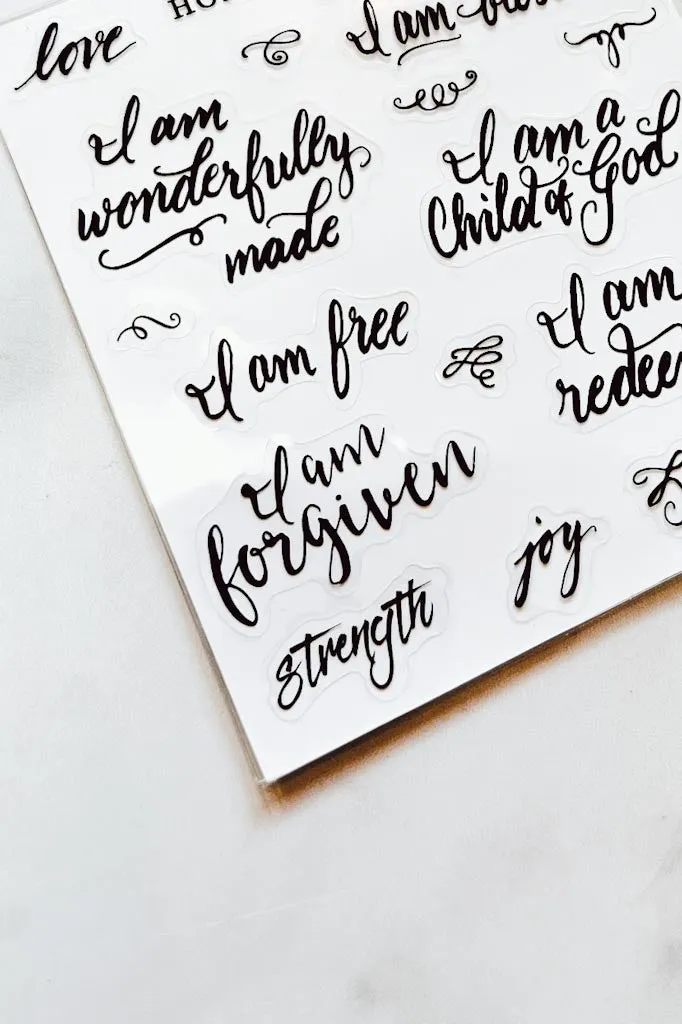 love
I am
I am
wonderfully
made
I am a
Child of God
I am free
I am
I am
forgiven
joy
strength